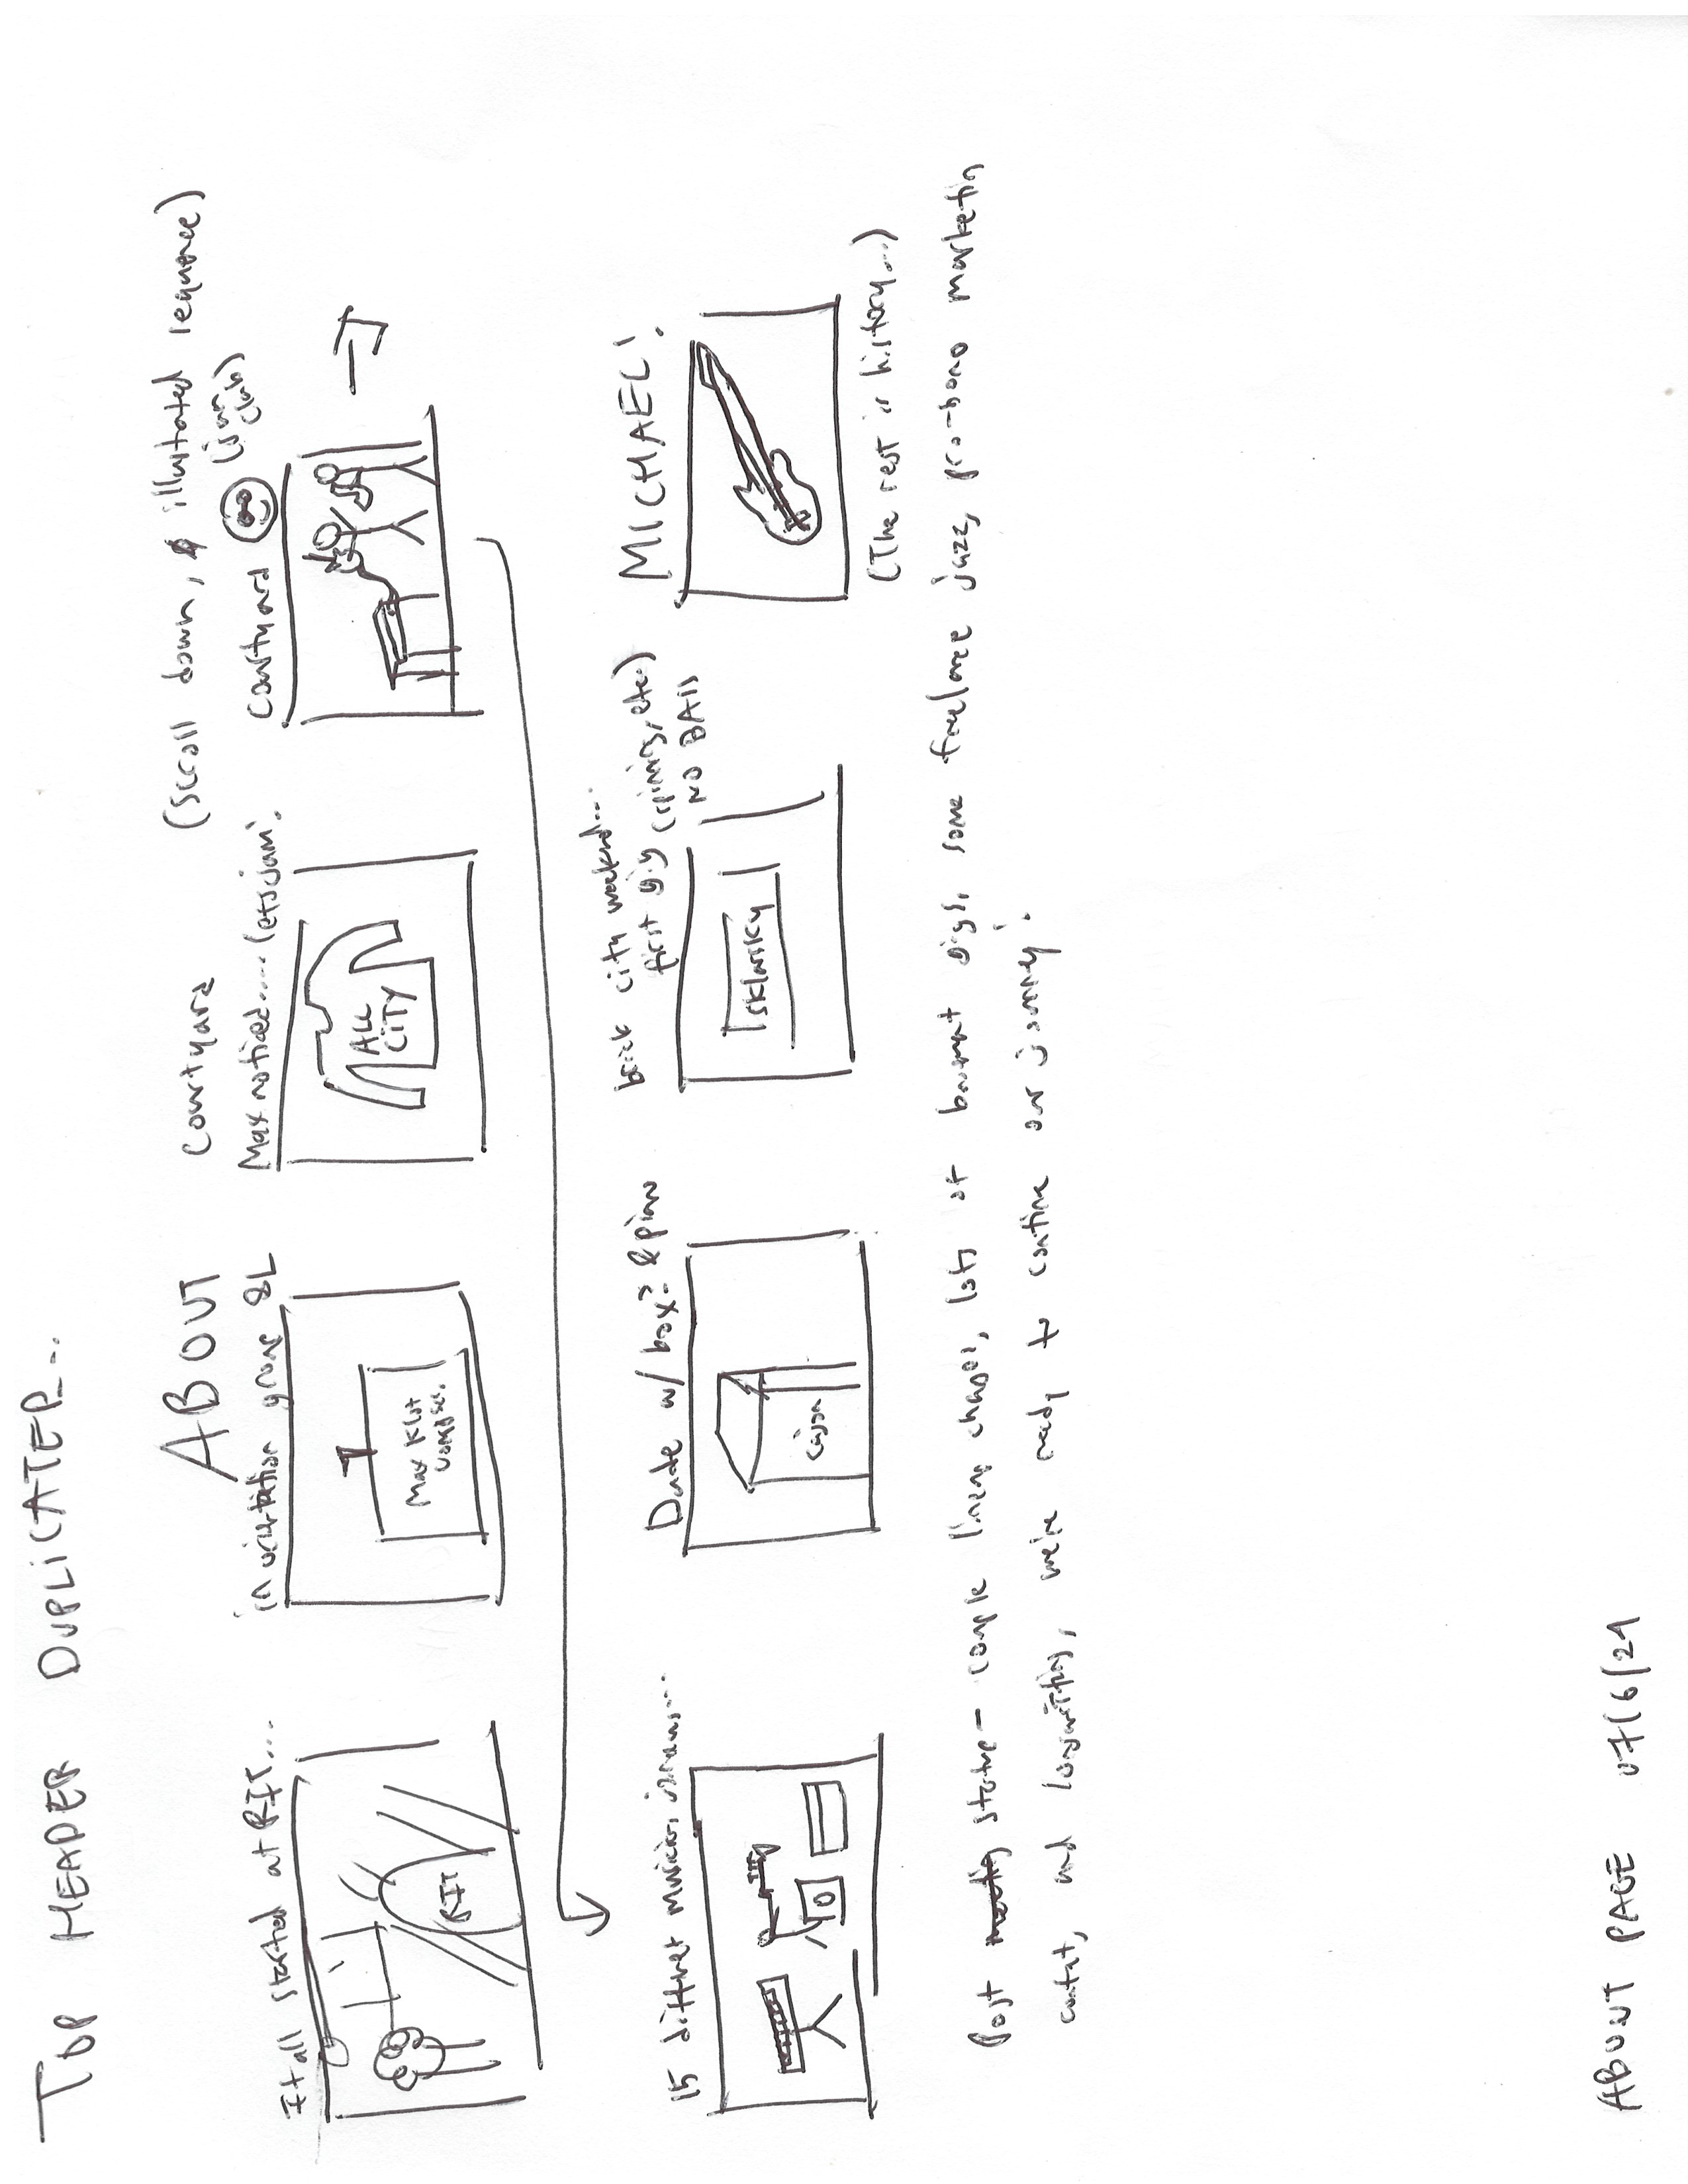 TOP HEADER DUPLICATER...
ABOUT
(scroll down, illustrated sequence)
It all started at RIT...
RIT
in orientation group 8L
Max Klot
comp sci.
courtyard
Max noticed..... lets jam!
ALL
CITY
courtyard
(jam
club)
15 different musicians
Dude w/ box? & piano
cajon
brick city weekend...
first gig (spinning, etc.)
NO BASS
sklarsky
MICHAEL!
(The rest is history...)
Post startup - couple lineup changes, lots of basement gigs, some freelance jazz, pro-bono marketing
content, and songwriting, we're ready to continue our journey!
ABOUT PAGE 07/6/21